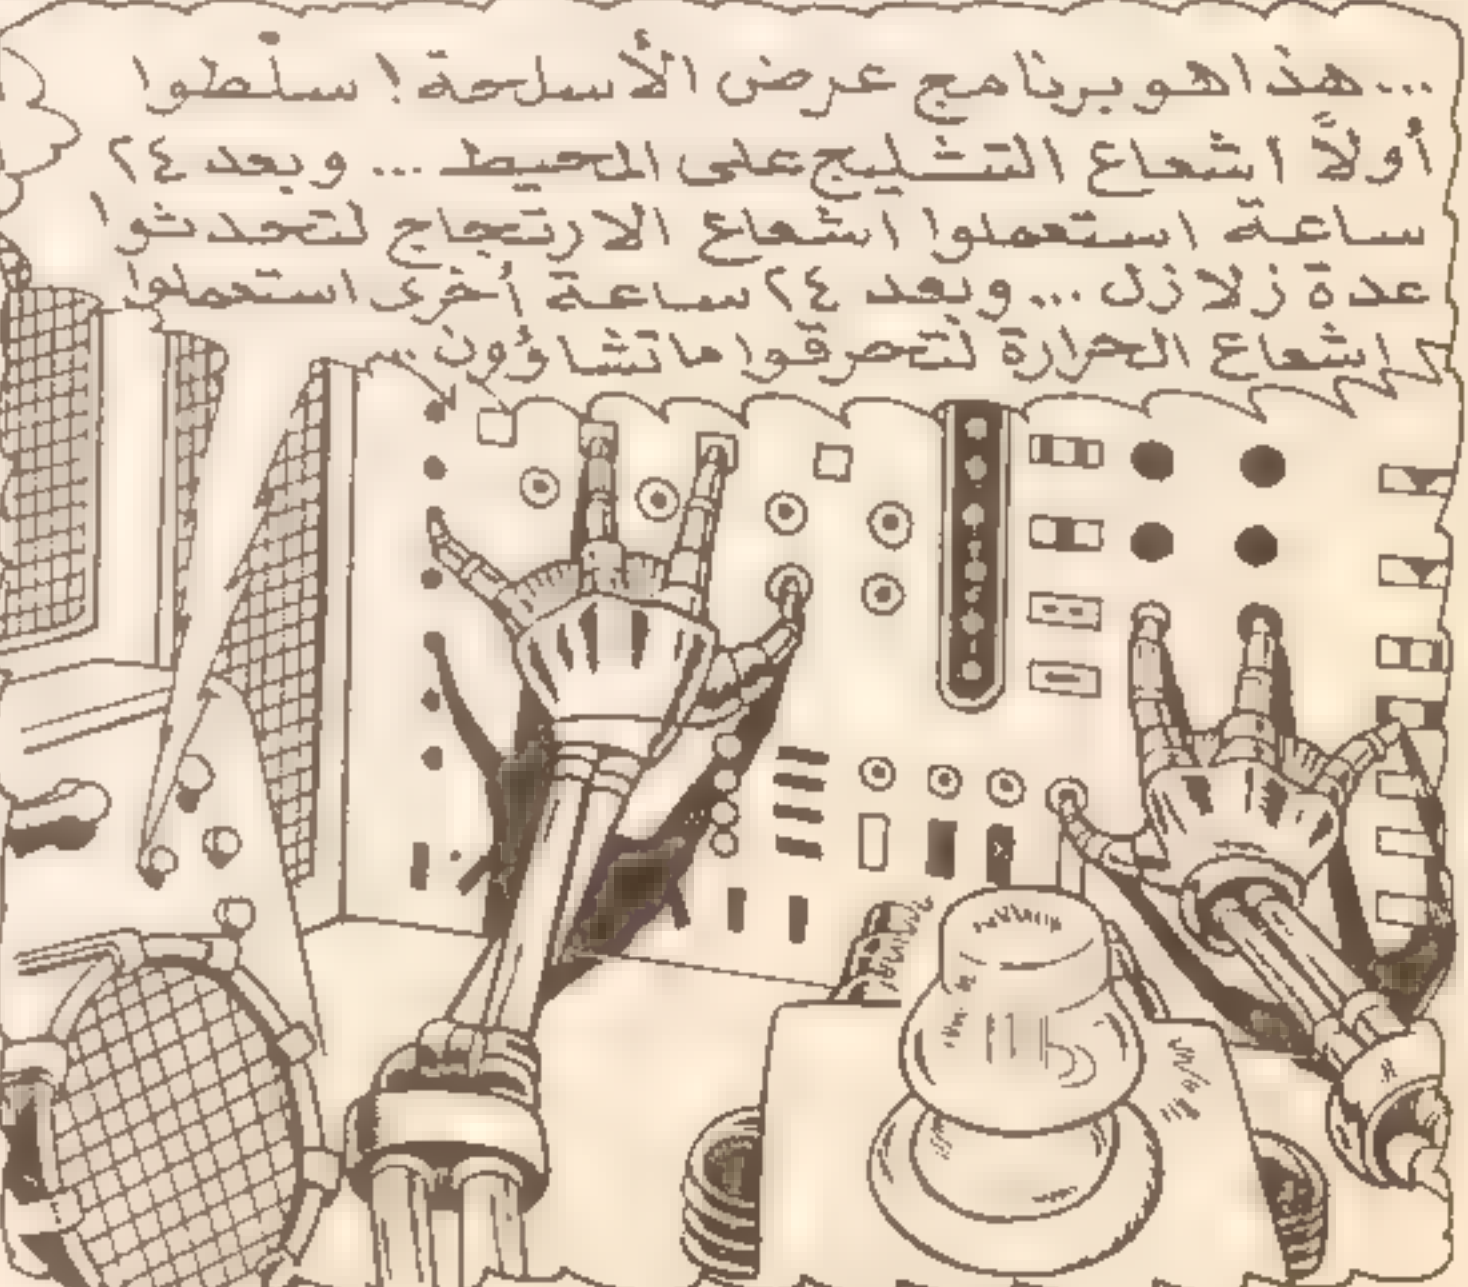 ...هذا هو برنامج عرض الأسلحة! سلّطوا
أولاً اشعاع التثليج على المحيط ... وبعد ٢٤
ساعة استعملوا اشعاع الارتجاج لتحدثوا
عدة زلازل ... وبعد ٢٤ ساعة أخرى استعملوا
اشعاع الحرارة لتحرقوا ما تشاؤون ...